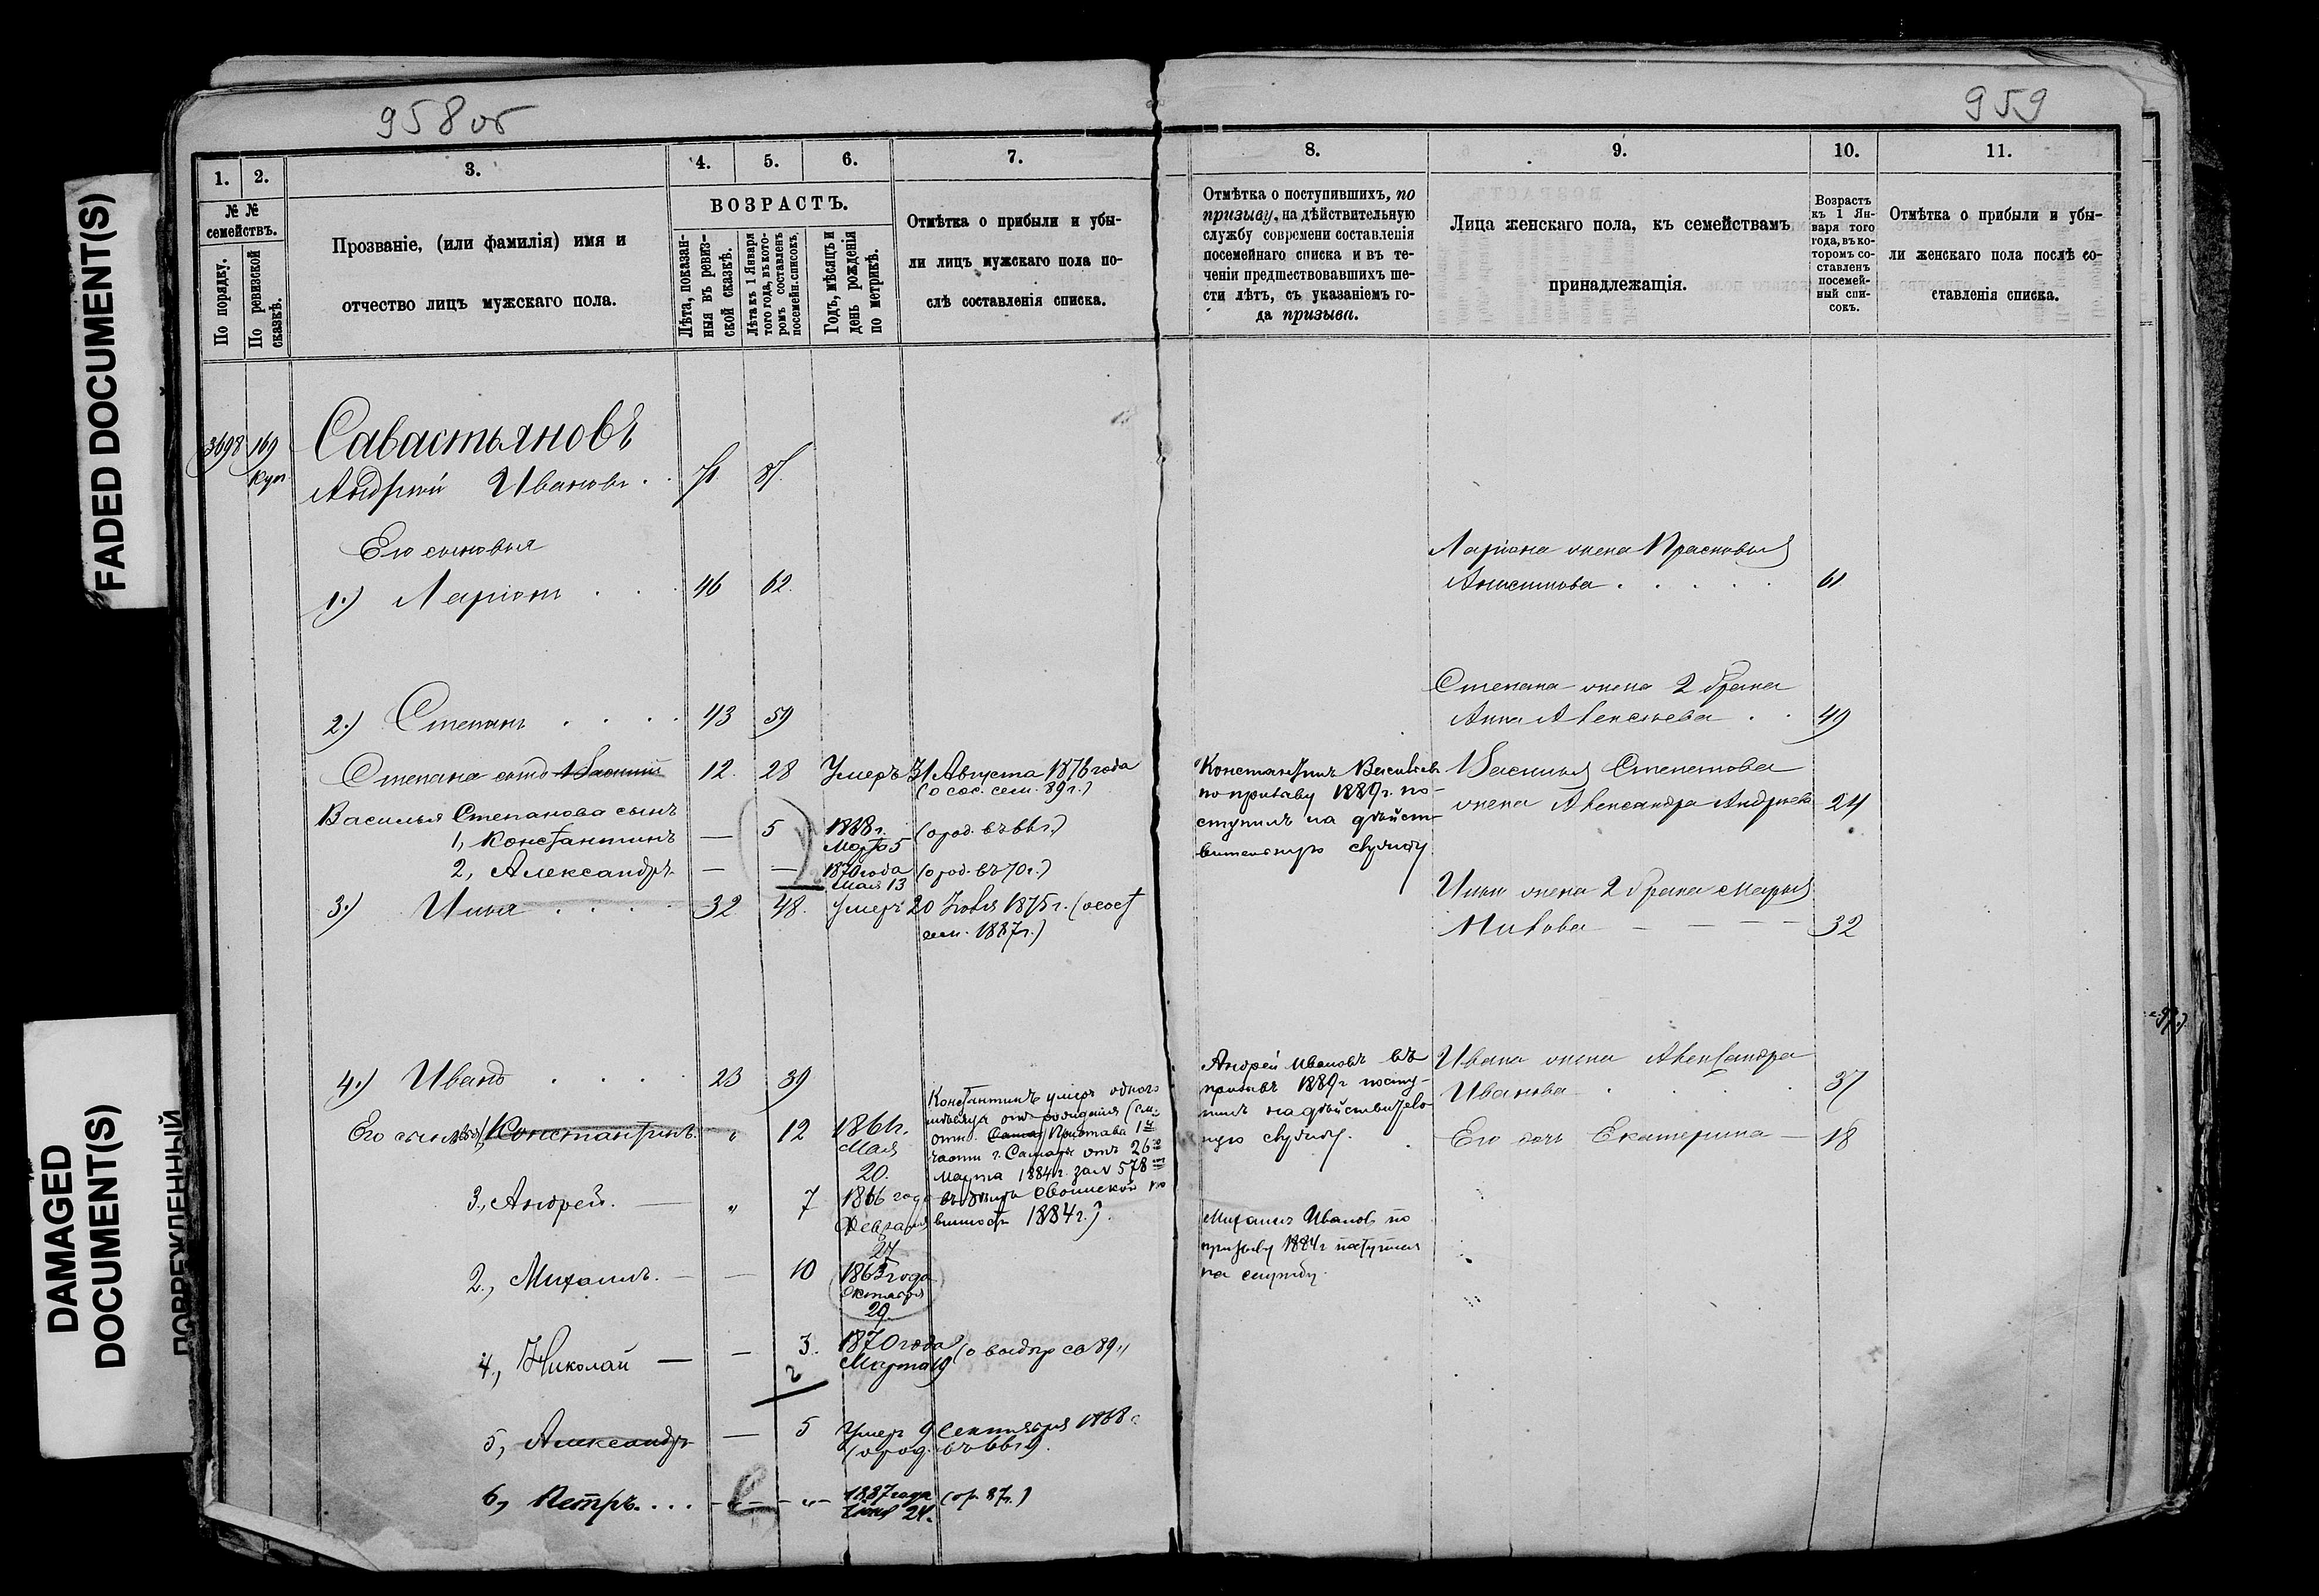 FADED DOCUMENT(S)
DAMAGED
DOCUMENT(S)
ПОВРЕЖДЕННЫЙ
958 об
959
1.
2.
3.
4.
5.
6.
7.
№ №
семействъ.
По порядку.
По ревизской
сказкѣ.
Прозваніе, (или фамилія) имя и
отчество лицъ мужскаго пола.
ВОЗРАСТЪ.
Лѣта, показан-
ныя въ ревиз-
ской сказкѣ.
Лѣта къ 1 Января
того года, въ кото-
ромъ составленъ
посемейн. списокъ.
Годъ, мѣсяцъ и
день рожденія
по метрикѣ.
Отмѣтка о прибыли и убы-
ли лицъ мужскаго пола по-
слѣ составленія списка.
8.
9.
10.
11.
Отмѣтка о поступившихъ, по
призыву, на дѣйствительную
службу современи составленія
посемейнаго списка и въ те-
ченіи предшествовавшихъ ше-
сти лѣтъ, съ указаніемъ го-
да призыва.
Лица женскаго пола, къ семействамъ
принадлежащія.
Возрастъ
къ 1 Ян-
варя того
года, въ ко-
торомъ со-
ставленъ
посемей-
ный спи-
сокъ.
Отмѣтка о прибыли и убы-
ли женскаго пола послѣ со-
ставленія списка.
3698 169 Савастьяновъ
Куп Андрей Ивановъ 71. 87.
Его сыновья
1.) Ларіонъ 46 62.
2.) Степанъ 43 59
Степана сынъ Василий 12. 28 Умеръ 31 Августа 1876 года
(о сос. сем. 89 г.)
Василья Степанова сынъ
1, Константинъ — 5 1868 г. (о род. въ 68 г.)
Марта 5
2, Александръ — — 1870 года (о род. въ 70 г.)
Мая 13
3.) Илья 32 48. Умеръ 20 1875 г. (о сост
сем. 1887 г.)
4.) Иванъ 23 39
Его сыновья 1, Константинъ " 12 1861 г.
Мая
20.
Константинъ умеръ одного
мѣсяца отъ рожденія (см.
отн. Пристава 1й
части г. Самары отъ 26го
Марта 1884 г. за № 578
воинской по
винности 1884 г.).
3, Андрей. — " 7 1866 года
Февраля
27
2, Михаилъ. — — 10 1863 года
Октября
29.
4, Николай — — 3. 1870 года
Марта 19
5, Александръ — 5 Умеръ 9 Сентября 1868 г.
(о род. въ
6, Петръ. . . . 1887 года (ор. 87 г.)
24.
Константинъ Васильевъ
по призыву 1889 г. по-
ступилъ на дѣйст-
вительную службу.
Андрей Ивановъ въ
призывъ 1889 г посту-
пилъ на дѣйствитель
ную службу.
Михаилъ Ивановъ по
призыву 1884 г поступилъ
на службу.
Ларіона жена Прасковья
Анисимова 61
Степана жена 2 брака
Анна Алексѣева 49
Василья Степанова
жена Александра Андреева 24
Ильи жена 2 брака Марья
32
Ивана жена Александра
Иванова 37
Его дочь Екатерина — 18